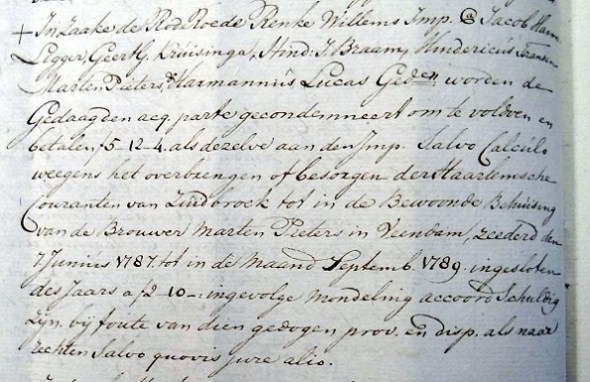 + In Zaake de Roó Roede Renke Willems Imp. @ Jacob Harm
Ligger, Geert G. Kruisinga, Hind: J. Braam, Hindericus
Marten Pieters & Harmannus Lucas Ged.en worden de
Gedaagden aeq. parte gecondemneert om te voldoen en
betalen f 5-12-4. als dezelve aan den Imp. Salvo Calculo
weegens het overbrengen of besorgen der Haarlemsche
Couranten van Zuidbroek tot in de Bewoonde Behuising
van de Brouwer Marten Pieters in Veendam, zeederd den
7 Junius 1787. tot in de Maand Septemb. 1789. ingesloten
des Jaars a f 2-10-. ingevolge mondeling accoord Schuldig
Zyn. bij foute van dien gedogen prov. en disp. als naar
rechten Salvo quovis jure alio.